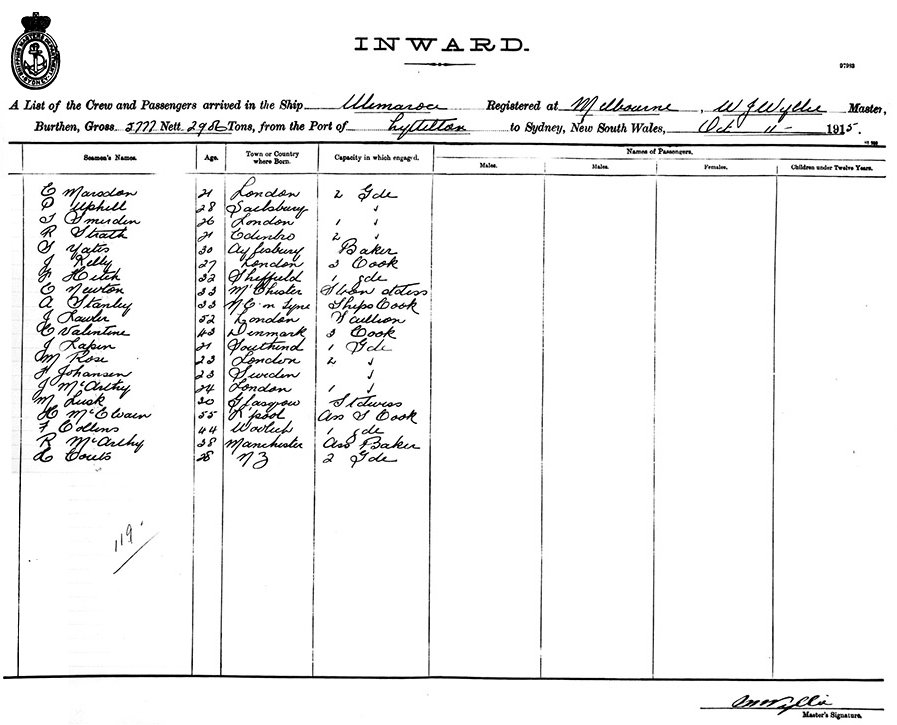 INWARD.
97983
A List of the Crew and Passengers arrived in the Ship Ulimaroa Registered at Melbourne, W J Wyllie Master,
Burthen, Gross 5777 Nett 2986 Tons, from the Port of Lyttelton to Sydney, New South Wales, Oct 11 - 1915.
Names of Passengers.
Seamen's Names. Age. Town or Country where Born. Capacity in which engaged. Males. Males. Females. Children under Twelve Years.
E Marsdon 21 London 2 Gde
P Uphill 28 Sailsbury "
T Smirden 26 London 1 "
R Strath 21 Edinbro 2 "
S Yates 30 Aylesbury Baker
J Kelly 27 London 3 Cook
F Hitch 32 Sheffield 1 gde
E Newton 33 McChester
A Stanley 33 N.C. on Tyne Ships Cook
J Lawler 52 London Scullion
C Valentine 43 Denmark 3 Cook
J Lapin 21 Southend 1 Gde
M Rose 23 London 2 "
F Johansen 23 Sweden "
J McArthy 24 London 1 "
M Lusk 30 Glasgow Stdwiss
H McElvain 55 L'pool Ass S Cook
F Collins 44 Woolich 1 gde
R McArthy 38 Manchester Ass Baker
L Couts 28 NZ 2 Gde
119
Master's Signature.